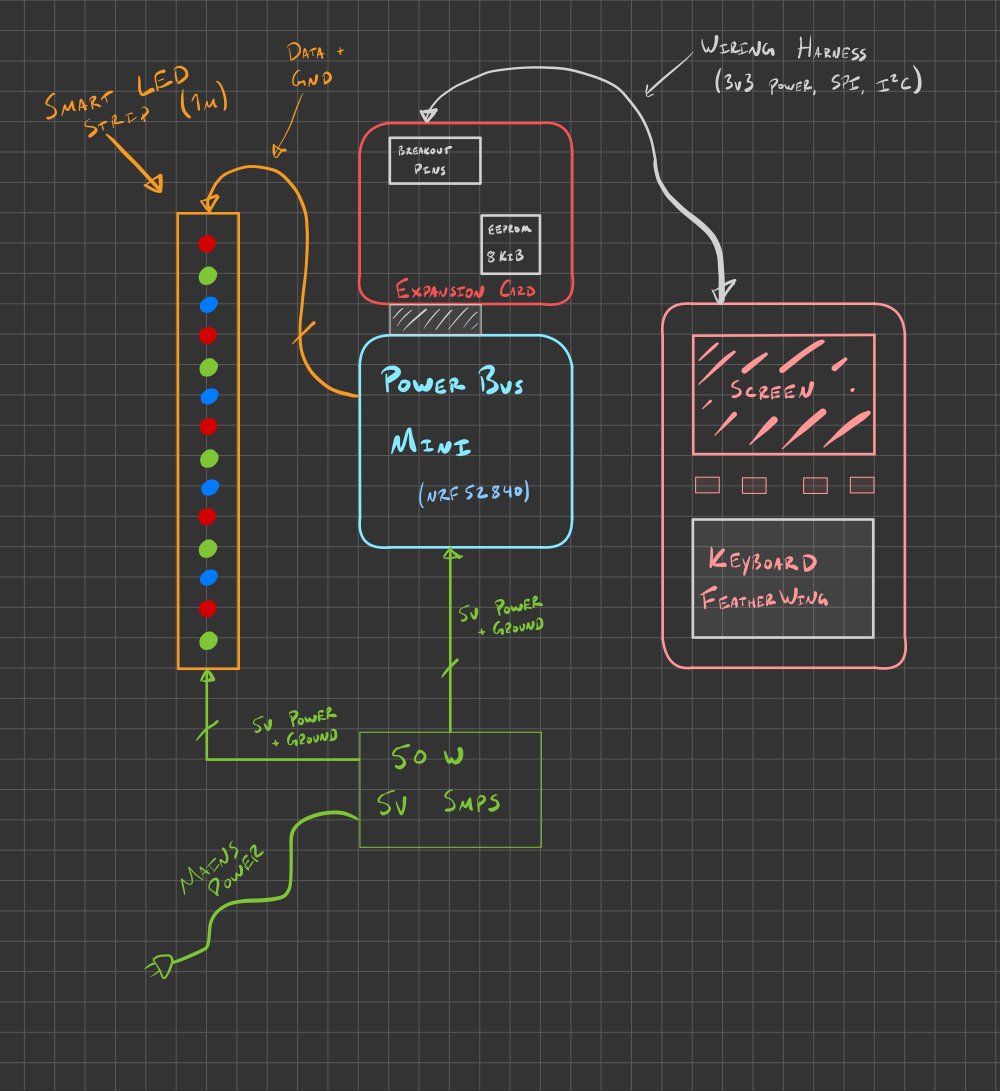 DATA +
GND
WIRING HARNESS
(3V3 POWER, SPI, I²C)
SMART LED
STRIP (1M)
BREAKOUT
PINS
EEPROM
8 KIB
EXPANSION CARD
POWER BUS
MINI
(NRF52840)
SCREEN
KEYBOARD
FEATHERWING
5V POWER
+ GROUND
5V POWER
+ GROUND
50 W
5V SMPS
MAINS
POWER